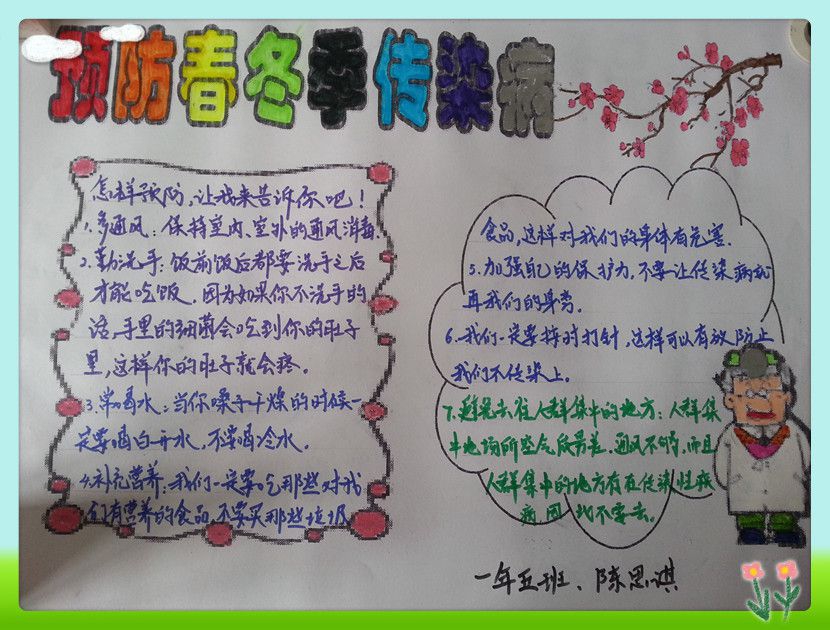 预防春冬季传染病
怎样预防,让我来告诉你吧!
1.多通风:保持室内、室外的通风消毒.
2.勤洗手:饭前饭后都要洗手之后
才能吃饭。因为如果你不洗手的
话,手里的细菌会吃到你的肚子
里,这样你的肚子就会疼。
3.常喝水:当你嗓子干燥的时候一
定要喝白开水,不要喝冷水.
4.补充营养:我们一定要吃那些对我
们有营养的食品,不要买那些垃圾
食品,这样对我们的身体有危害.
5.加强自己的保护力,不要让传染病
再我们的身旁.
6.我们一定要按时打针,这样可以有放防止
我们不传染上。
7.避免去往人群集中的地方:人群集
中地场所空气质量差,通风不够,而且
人群集中的地方有在传染性疾
病 因 找不要去。
一年五班、陈思淇